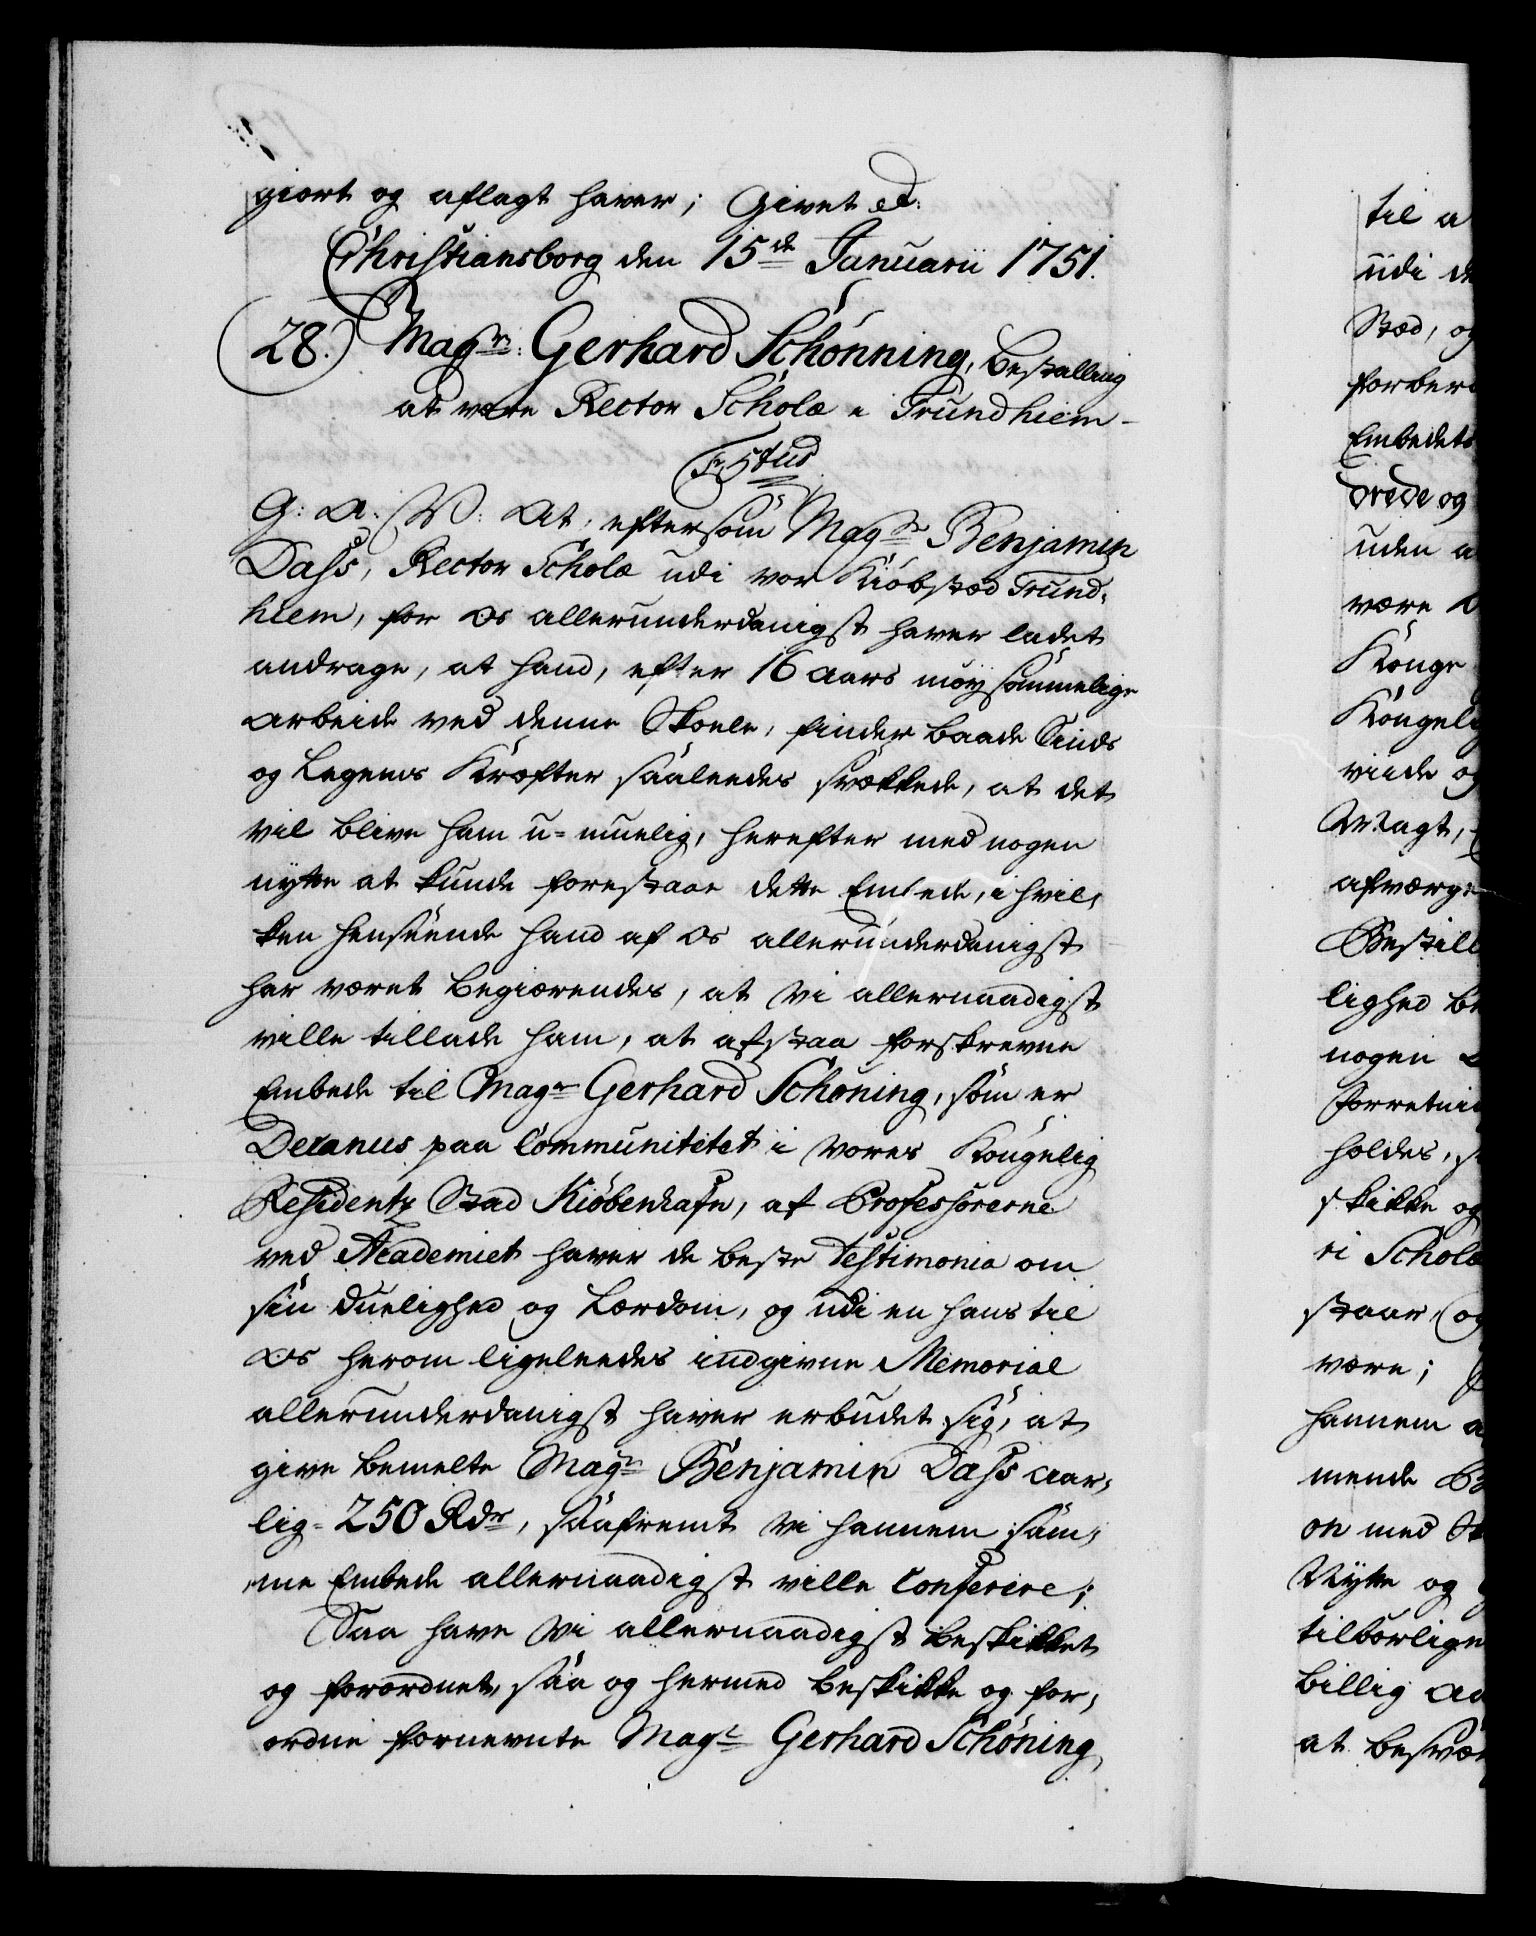 giort og aflagt haver; Givet etc:
Christiansborg den 15de Januarii 1751.
28.) Magr: Gerhard Schönning, Bestalling
at være Rector Scholæ i Trundhiem
F 5tus
G: A: V: At, eftersom Magr Benjamin
Dass, Rector Scholæ udi vor Kiöbstæd Trund,
hiem, for Os allerunderdanigst haver ladet
andrage, at hand, efter 16 Aars möysommelige
Arbeide ved denne Skoele, finder baade Sinds
og Legems Kræfter saaledes svækkede, at det
vil blive ham u-muelig, herefter med nogen
nytte at kunde forestaae dette Embede, i hvil,
ken henseende hand af Os allerunderdanigst
har været begiærendes, at Vi allernaadigst
ville tillade ham, at afstaa forskrevne
Embede til Magr Gerhard Schöning, som er
Decanus paa Communitetet i Vores Kongelig
Residentz Stad Kiöbenhafn, af Professorerne
ved Academiet haver de beste Testimonia om
sin Duelighed og Lærdom, og udi en hans til
Os herom ligeleedes indgivne Memorial
allerunderdanigst haver erbudet sig, at
give bemelte Magr Benjamin Dass Aar,
lig 250 Rdr, saafremt Vi hannem sam,
me Embede allernaadigst ville Conferere;
Saa have Vi allernaadigst beskikket
og forordnet, saa og hermed beskikke og for,
ordne fornevnte Magr Gerhard Schöning,
til a
udi de
Stæd, og
forbere
Embedets
Vrede og
uden a
være
Konge
Kongeli
viide og
Magt,
afværge
Bestill
lighed be
nogen
Forretni
holdes, s
skikke og
ri Scholæ
staar, og
være;
hannem a
mende
on med
Nytte og
tilbörlige
billig
at besvær